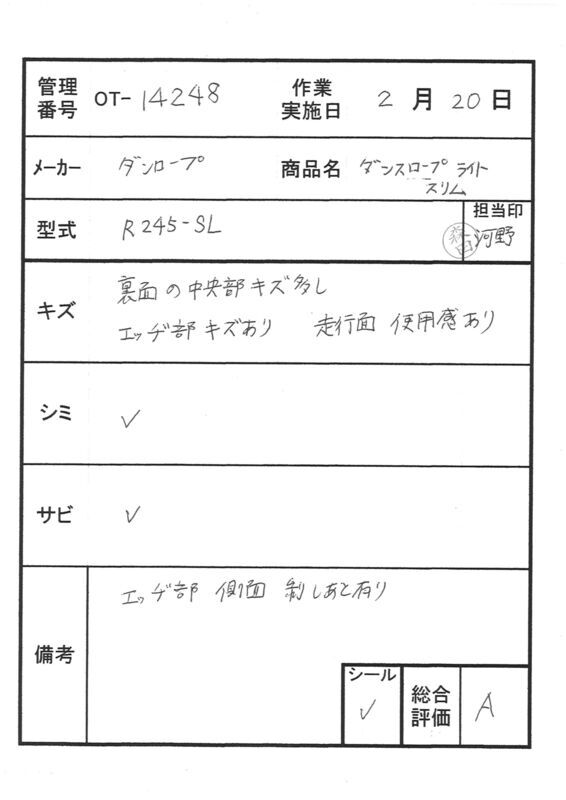 管理番号 OT-14248 作業実施日 2月20日
メーカー ダンロープ 商品名 ダンスロープ ライト
スリム
型式 R245-SL 担当印
森田 河野
キズ 裏面の中央部キズ多し
エッヂ部キズあり 走行面 使用感あり
シミ ✓
サビ ✓
備考 エッヂ部 側面 剥しあと有り
シール ✓ 総合評価 A